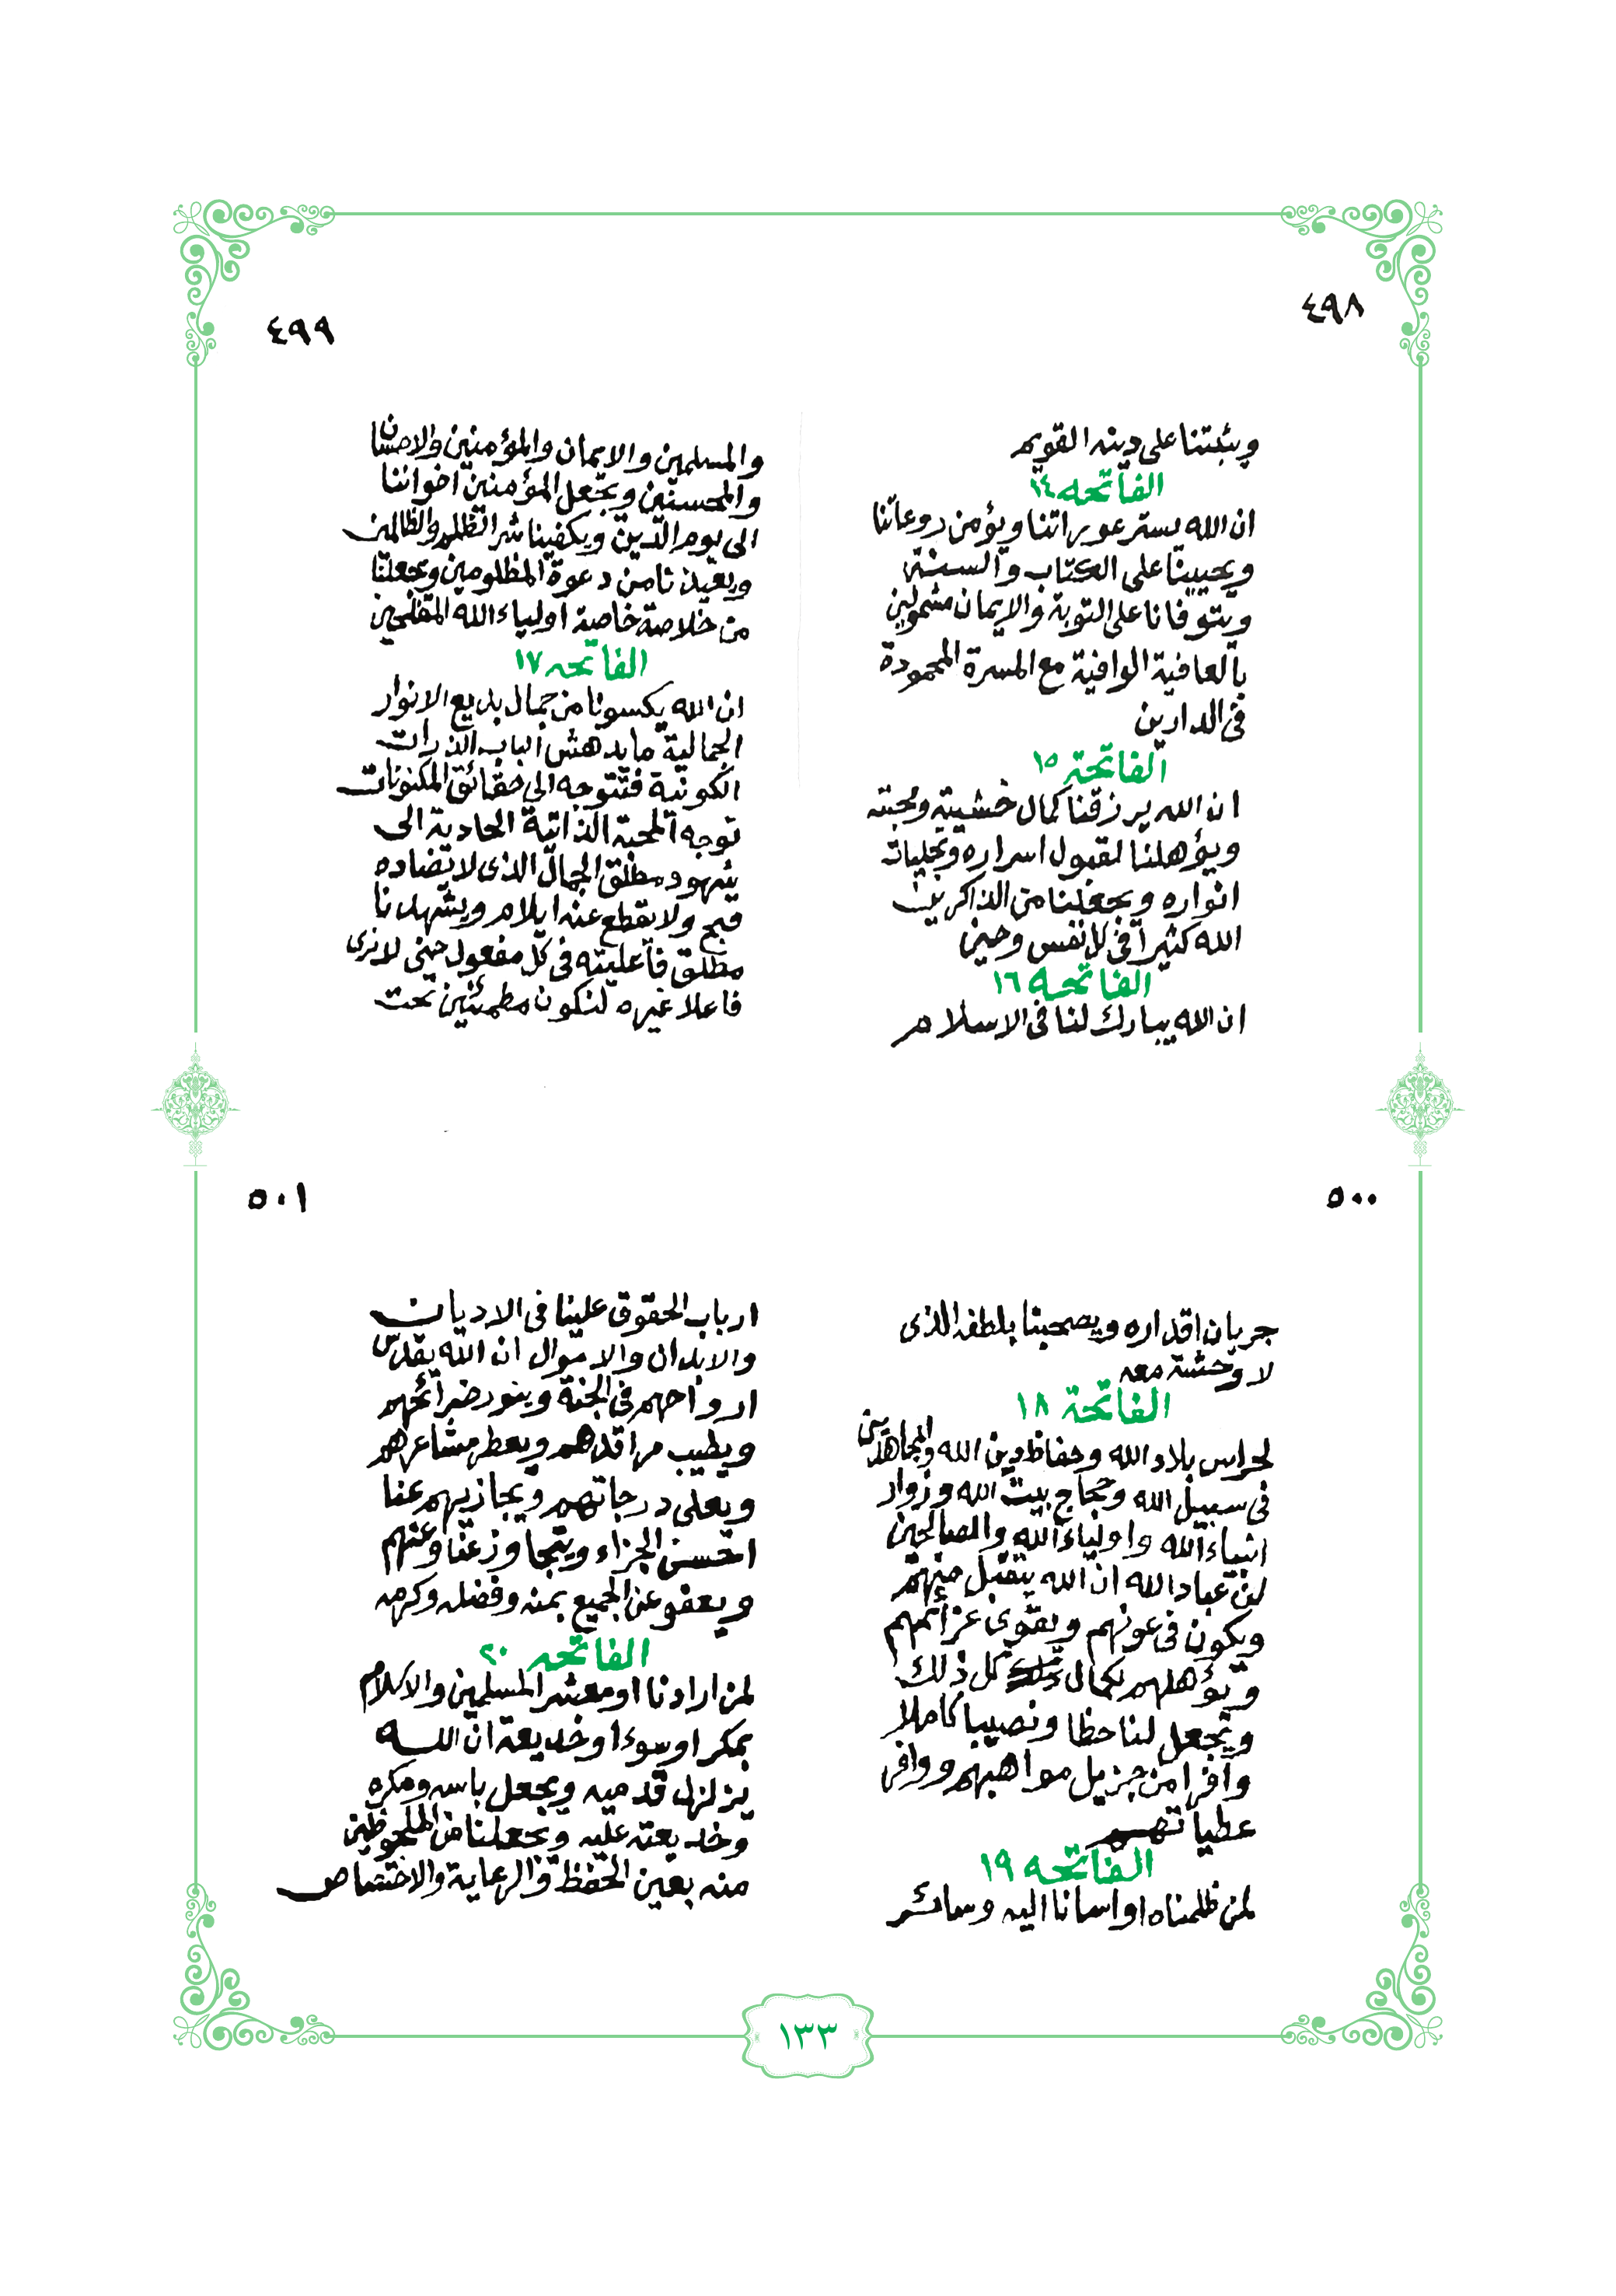 ٤٩٨
ويثبتنا على دينه القويم
الفاتحه ١٤
ان الله يستر عوراتنا ويؤمن روعاتنا
ويحيينا على الكتاب والسنة
ويتوفانا على التوبة والايمان مشمولين
بالعافية الوافية مع المسرة المحمودة
في الدارين
الفاتحة ١٥
ان الله يرزقنا كمال خشيته ومحبته
ويؤهلنا لقبول اسراره وتجليات
انواره ويجعلنا من الذاكرين
الله كثيرا في كل نفس وحين
الفاتحه ١٦
ان الله يبارك لنا في الاسلام
٤٩٩
والمسلمين والايمان والمؤمنين والاحسان
والمحسنين ويجعل المؤمنين اخواننا
الى يوم الدين ويكفينا شر الظلم والظالمين
ويعيذنا من دعوة المظلومين ويجعلنا
من خلاصة خاصة اولياء الله المفلحين
الفاتحه ١٧
ان الله يكسونا من جمال بديع الانوار
الجمالية ما يدهش الباب الذرات
الكونية فتتوجه الى حقائق المكنونات
توجه المحبة الذاتية الجاذبة الى
شهود مطلق الجمال الذى لا يضاده
قبح ولا يقطع عنه ايلام ويشهدنا
مطلق فاعليته في كل مفعول حتى لا نرى
فاعلا غيره لنكون مطمئنين تحت
٥٠٠
جريان اقداره ويصحبنا بلطفه الذى
لا وحشة معه
الفاتحة ١٨
لحراس بلاد الله وحفاظ دين الله والمجاهدين
في سبيل الله وحجاج بيت الله وزوار
انبياء الله واولياء الله والصالحين
من عباد الله ان الله يتقبل منهم
ويكون في عونهم ويقوى عزائمهم
ويؤهلهم لكمال كل ذلك
ويجعل لنا حظا ونصيبا كاملا
وافرا من جزيل مواهبهم ووافر
عطياتهم
الفاتحه ١٩
لمن ظلمناه او اسانا اليه وسائر
٥٠١
ارباب الحقوق علينا في الاديان
والابدان والاموال ان الله يقدس
ارواحهم في الجنة وينور ضرائحهم
ويطيب مراقدهم ويعطر مشاعرهم
ويعلى درجاتهم ويجازيهم عنا
احسن الجزاء ويتجاوز عنا وعنهم
ويعفو عن الجميع بمنه وفضله وكرمه
الفاتحه ٢٠
لمن ارادنا او معشر المسلمين والاسلام
بمكر او سوء او خديعة ان الله
يزلزل قدميه ويجعل باسه ومكره
وخديعته عليه ويجعلنا من الملحوظين
منه بعين الحفظ والرعاية والاختصاص
١٣٣